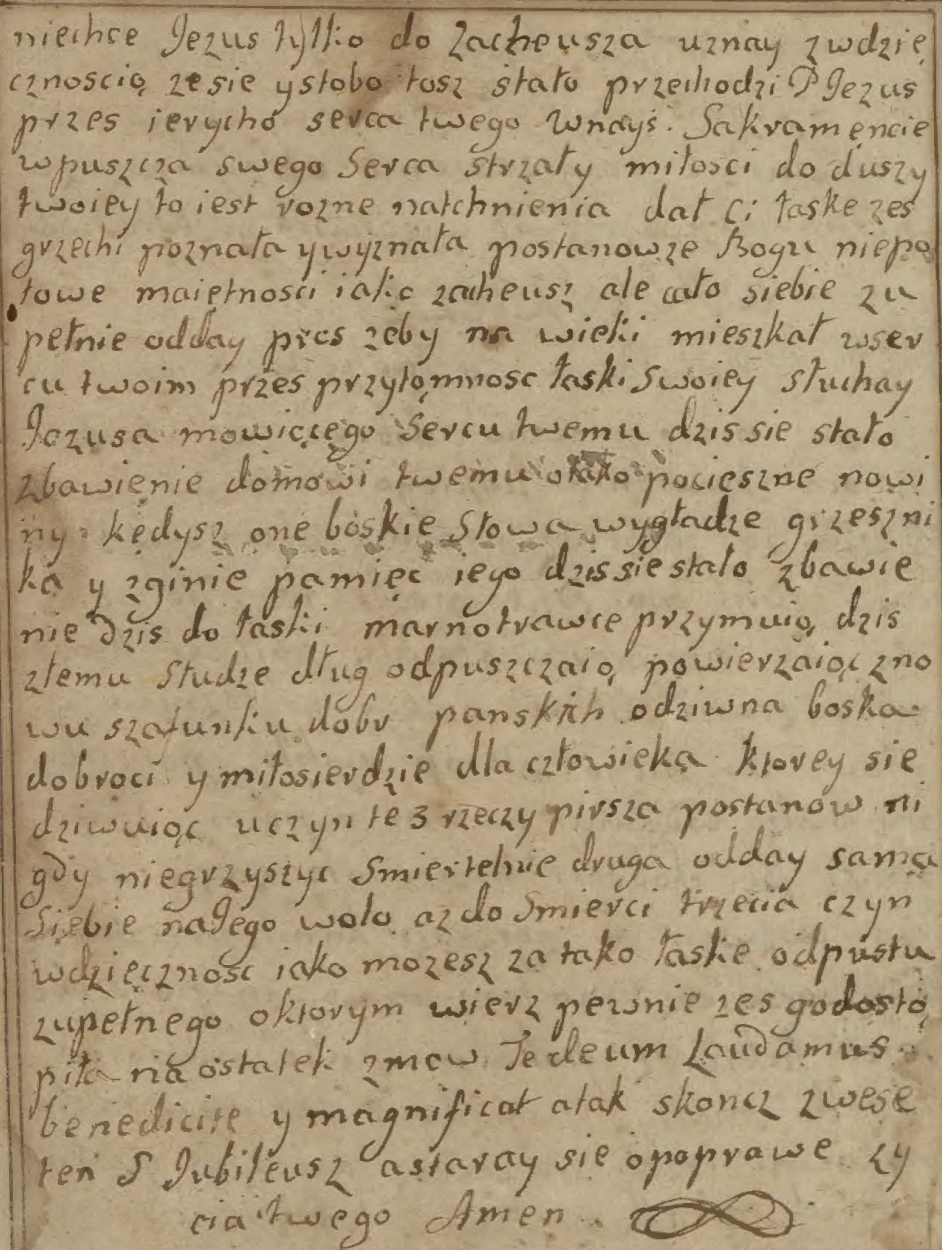 niechce Jezus tylko do Zacheusza uznay zwdzię
cznoscią ze sie y stobo tosz stało przechodzi P Jezus
przes ierycho serca twego wnayś. Sakramęncie
wpuszcza swego Serca strzały miłosci do duszy
twoiey to iest rozne natchnienia dał Ci łaske zes
grzechi poznała y wyznała postanowze Bogu niepo
łowe maiętnosci iako zacheusz ale cało siebie zu
pełnie odday pros zeby na wieki mieszkał wser
cu twoim przes przytomnosc łaski swoiey słuchay
Jezusa mowiącego Sercu twemu dzis sie stało
zbawięnie domowi twemu o iako pocieszne nowi
ny kędysz one boskie Słowa wygładze grzeszni
ka y zginie pamięc iego dzis sie stało zbawie
nie dzis do łaski marnotrawce przymuią dzis
złemu Słudze dług odpuszczaią powierzaiąc zno
wu szafunku dobr panskich o dziwna boska
dobroci y miłosierdzie dla człowieka ktorey się
dziwuiąc uczyn te 3 rzeczy pirsza postanow ni
gdy niegrzyszyc Smiertelnie druga odday samą
Siebie na Jego wolo az do Smierci trzecia czyn
wdzięcznosc iako mozesz za tako łaske odpustu
zupełnego oktorym wierz pewnie zes go dostą
piła na ostatek zmow Te deum Laudamus
benedicite y magnificat a tak skoncz zwese
łen S Jubileusz a staray się o poprawe zy
cia twego Amen